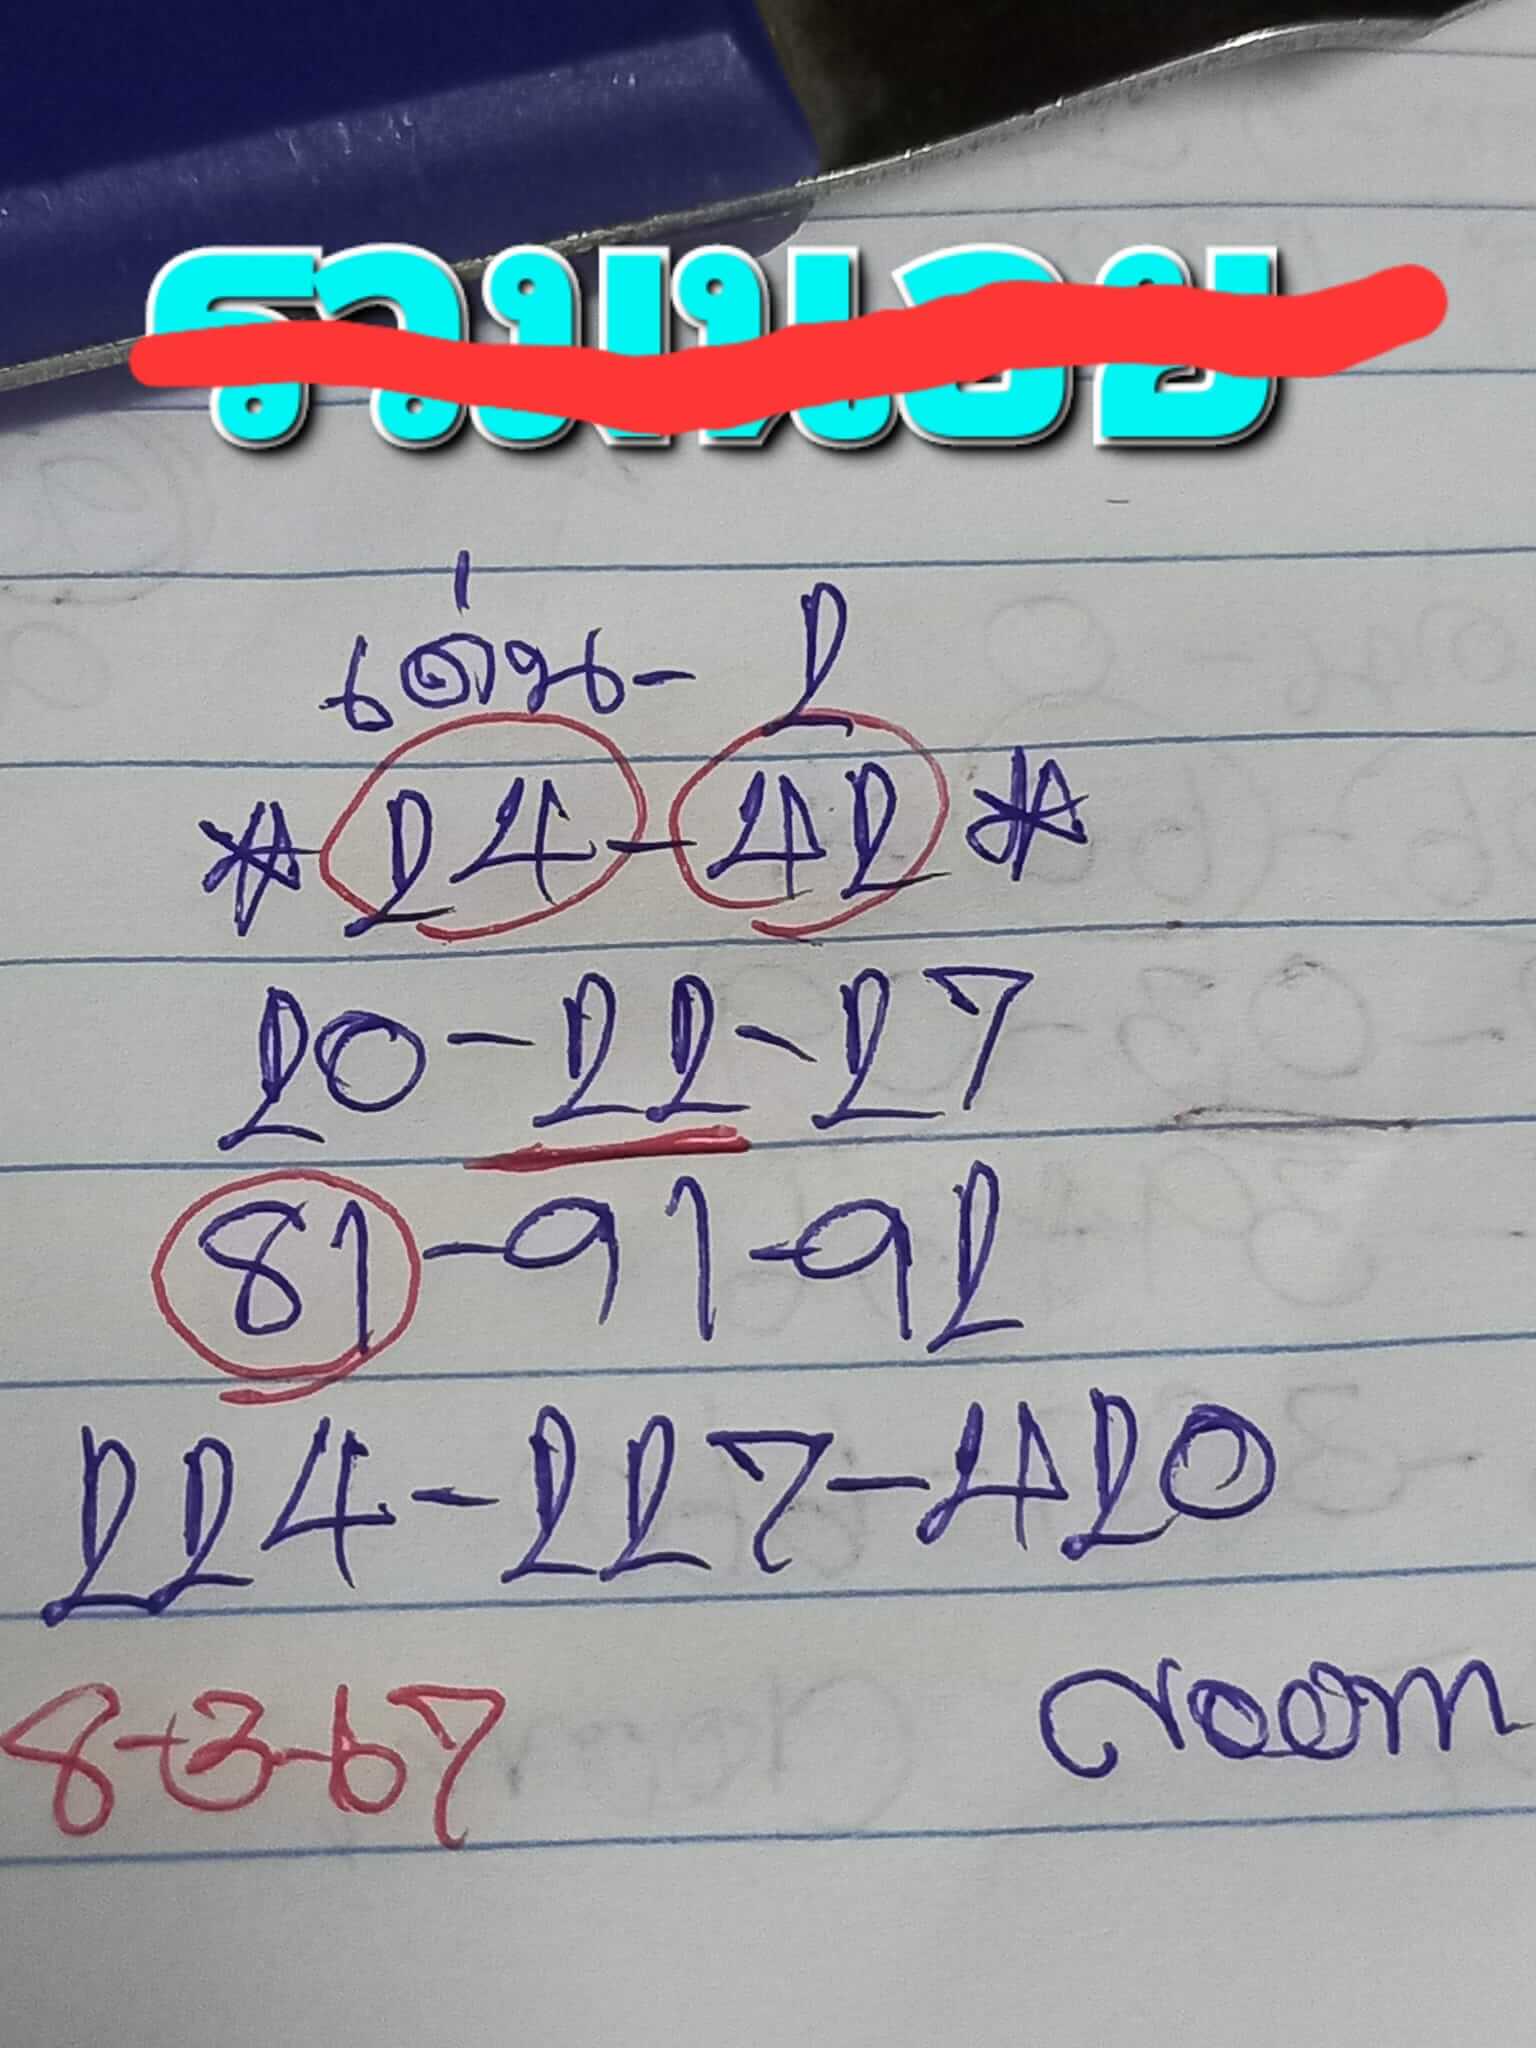 รวมนอย
เด่น- 2
*24-42*
20-22-27
81-91-92
224-227-420
8-3-67
room